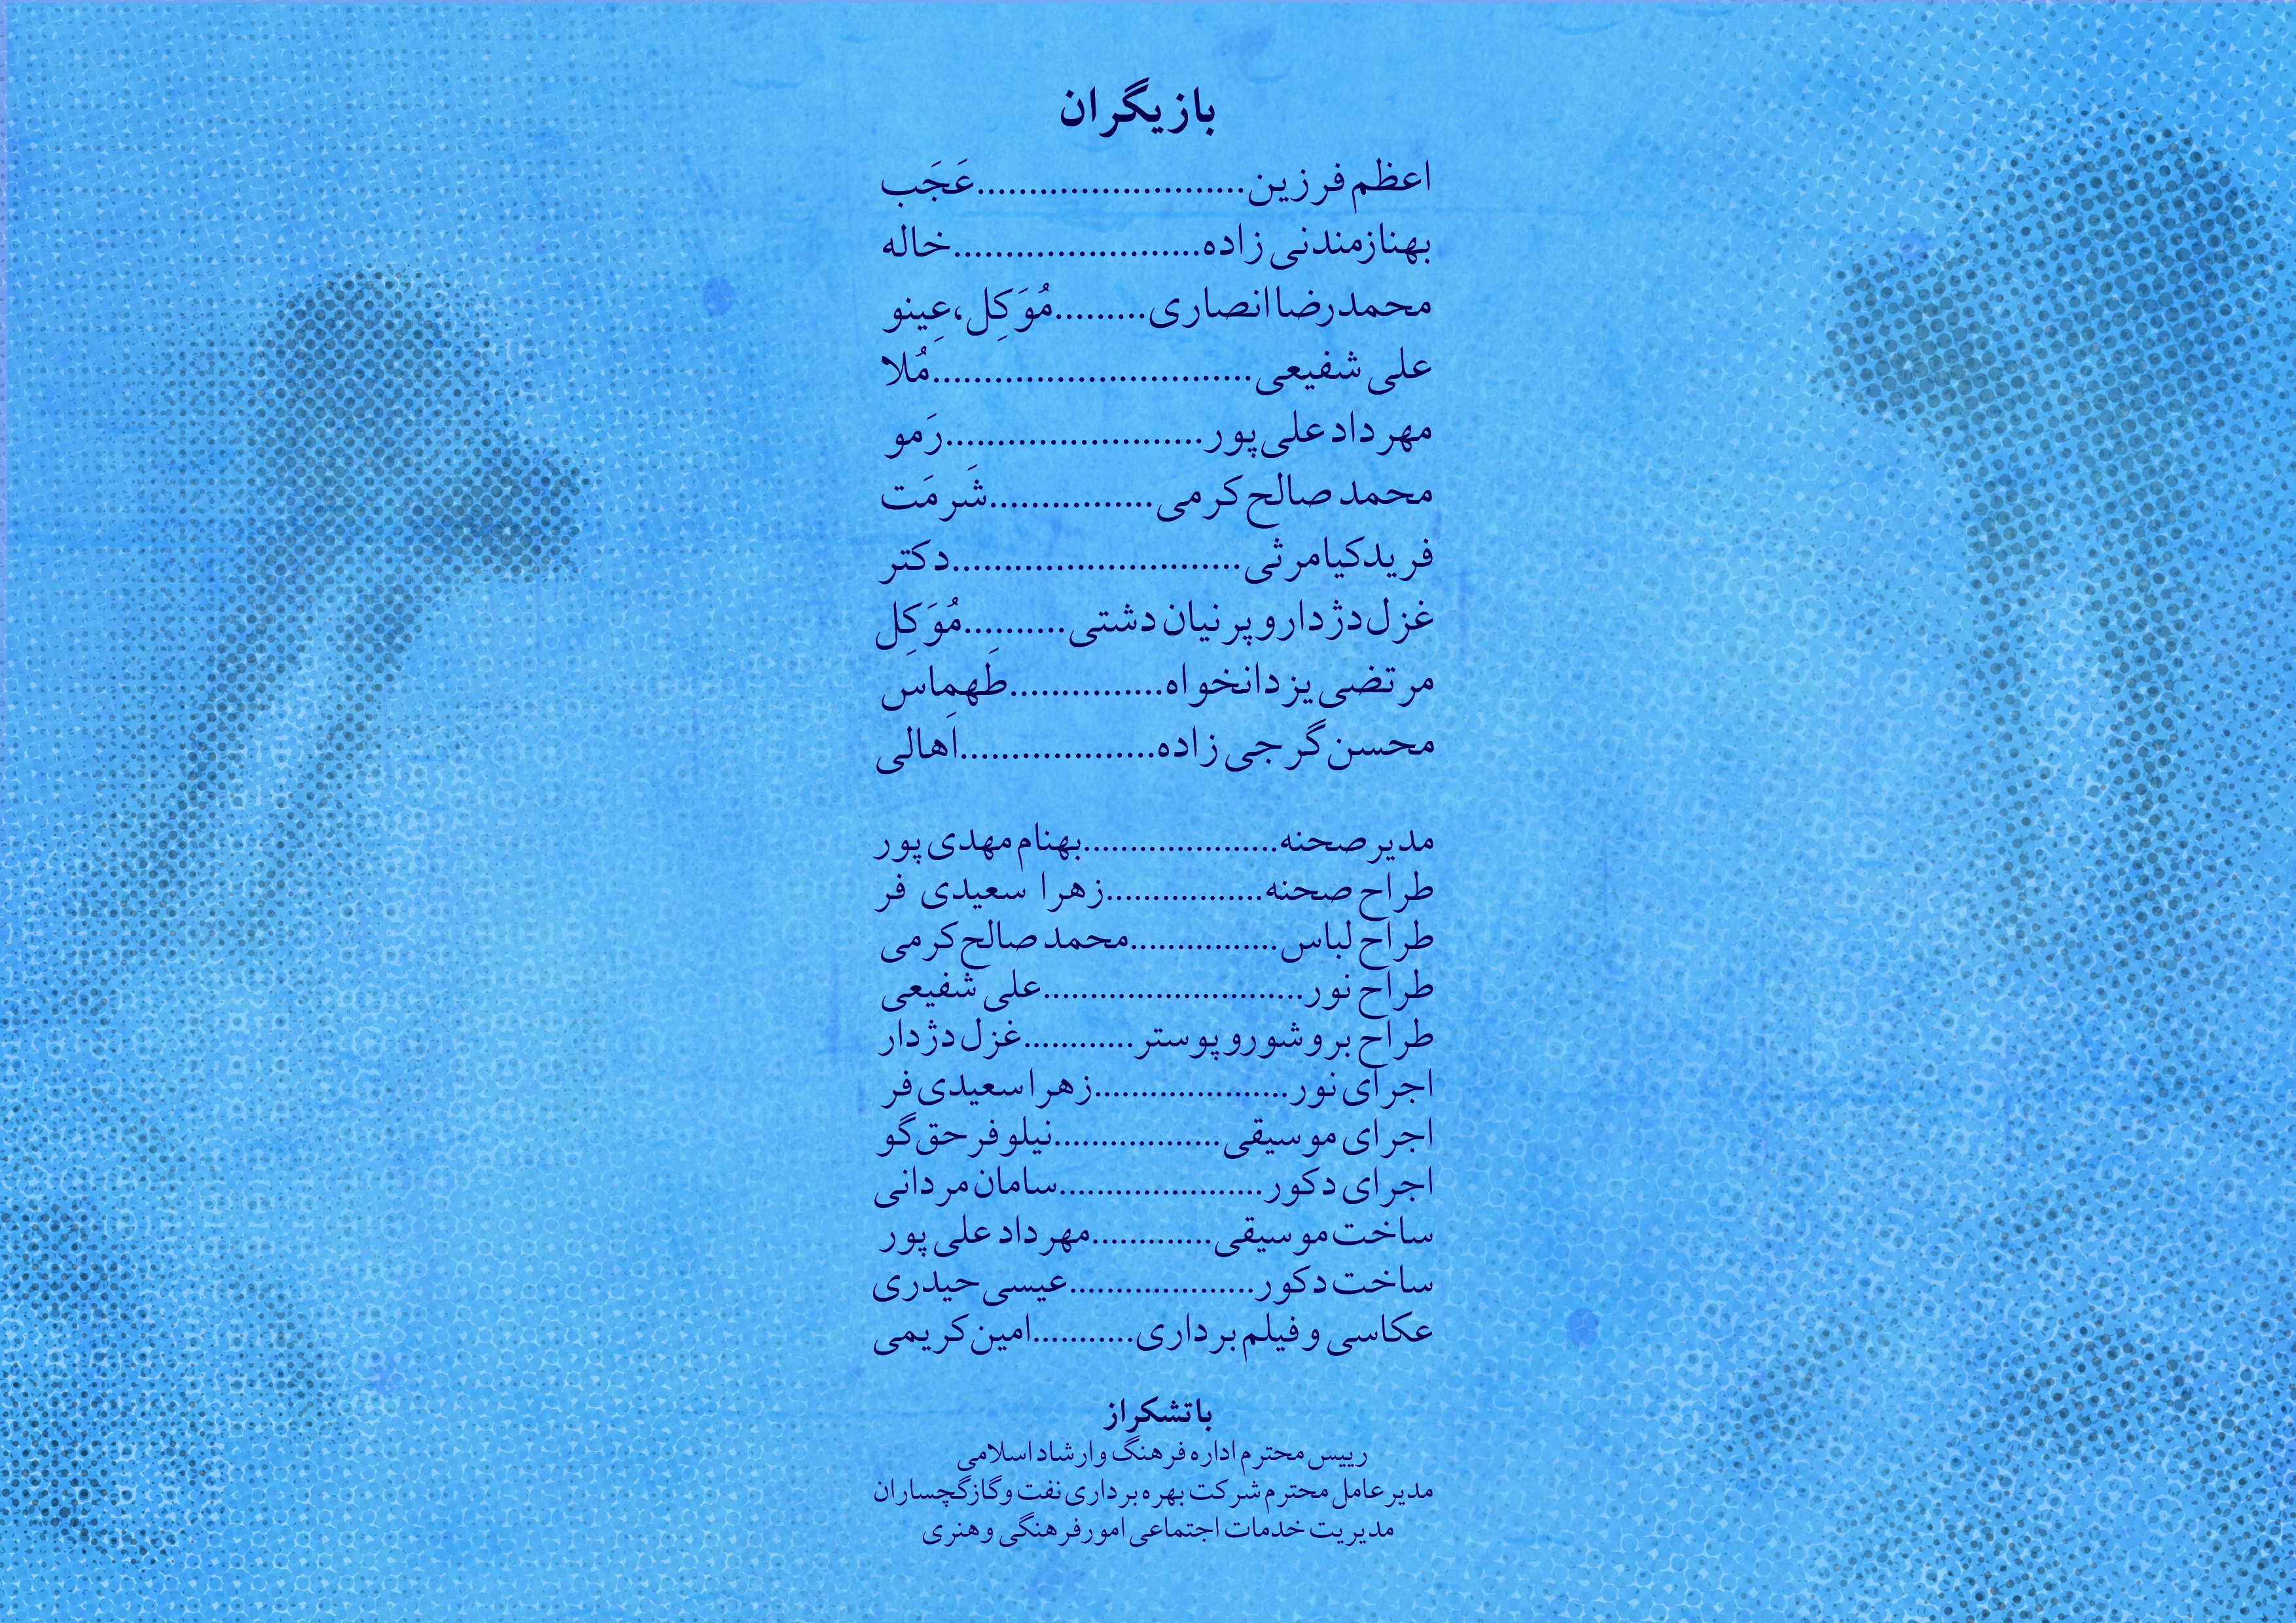 بازیگران
اعظم فرزین..........................عَجَب
بهناز مندنی زاده........................خاله
محمدرضا انصاری.........مُوَکِل، عِینو
علی شفیعی...............................مُلا
مهرداد علی پور.........................رَمو
محمد صالح کرمی................شَرمَت
فرید کیامرثی............................دکتر
غزل دژدار و پرنیان دشتی..........مُوَکِل
مرتضی یزدانخواه...............طَهمِاس
محسن گرجی زاده...................اَهالی
مدیر صحنه.....................بهنام مهدی پور
طراح صحنه.................زهرا سعیدی فر
طراح لباس................محمد صالح کرمی
طراح نور............................علی شفیعی
طراح بروشور و پوستر............غزل دژدار
اجرای نور.....................زهرا سعیدی فر
اجرای موسیقی..................نیلوفر حق گو
اجرای دکور......................سامان مردانی
ساخت موسیقی.............مهرداد علی پور
ساخت دکور....................عیسی حیدری
عکاسی و فیلم برداری...........امین کریمی
با تشکر از
رییس محترم اداره فرهنگ و ارشاد اسلامی
مدیر عامل محترم شرکت بهره برداری نفت و گاز گچساران
مدیریت خدمات اجتماعی امور فرهنگی و هنری